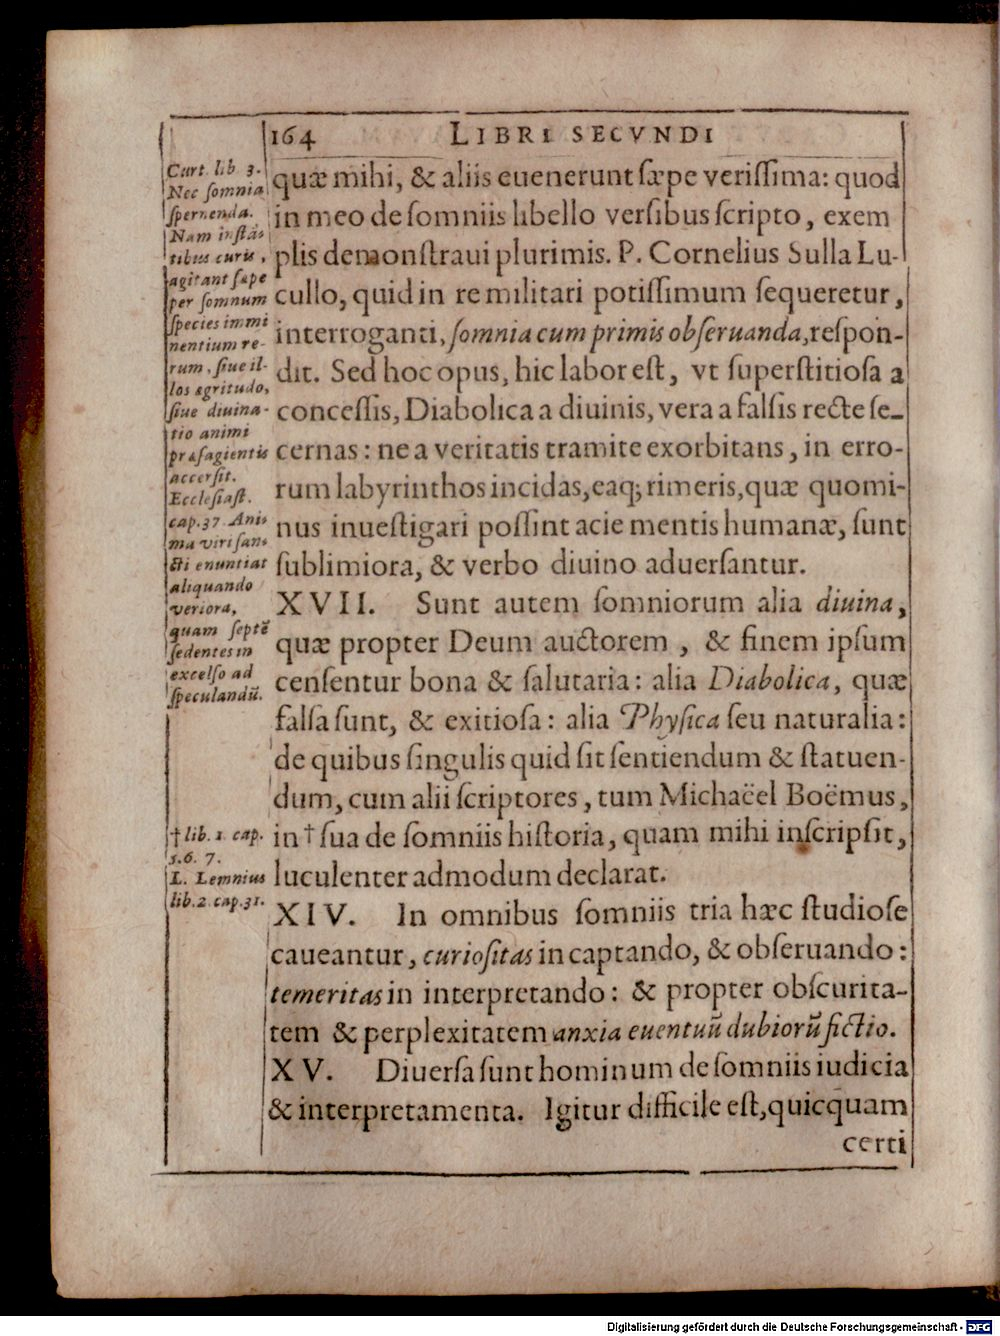 164 LIBRI SECVNDI
quæ mihi, & aliis euenerunt sæpe verissima: quod
in meo de somniis libello versibus scripto, exem
plis demonstraui plurimis. P. Cornelius Sulla Lu-
cullo, quid in re militari potissimum sequeretur,
interroganti, somnia cum primis obseruanda, respon-
dit. Sed hoc opus, hic labor est, vt superstitiosa a
concessis, Diabolica a diuinis, vera a falsis recte se-
cernas: ne a veritatis tramite exorbitans, in erro-
rum labyrinthos incidas, eaq; rimeris, quæ quomi-
nus inuestigari possint acie mentis humanæ, sunt
sublimiora, & verbo diuino aduersantur.
XVII. Sunt autem somniorum alia diuina,
quæ propter Deum auctorem, & finem ipsum
censentur bona & salutaria: alia Diabolica, quæ
falsa sunt, & exitiosa: alia Physica seu naturalia:
de quibus singulis quid sit sentiendum & statuen-
dum, cum alii scriptores, tum Michaëel Boëmus,
in † sua de somniis historia, quam mihi inscripsit,
luculenter admodum declarat.
XIV. In omnibus somniis tria hæc studiose
caueantur, curiositas in captando, & obseruando:
temeritas in interpretando: & propter obscurita-
tem & perplexitatem anxia euentuũ dubiorũ fictio.
XV. Diuersa sunt hominum de somniis iudicia
& interpretamenta. Igitur difficile est, quicquam
certi
Curt. lib 3.
Nec somnia
spernenda.
Nam instã-
tibus curis,
agitant sæpe
per somnum
species immi
nentium re-
rum, siue il-
los ægritudo,
siue diuina-
tio animi
præsagientis
accersit.
Ecclesiast.
cap. 37. Ani-
ma viri san-
cti enuntiat
aliquando
veriora,
quam septẽ
sedentes in
excelso ad
speculandũ.
† lib. 1 cap.
5. 6. 7.
L. Lemnius
lib. 2. cap. 31.
Digitalisierung gefördert durch die Deutsche Forschungsgemeinschaft - DFG